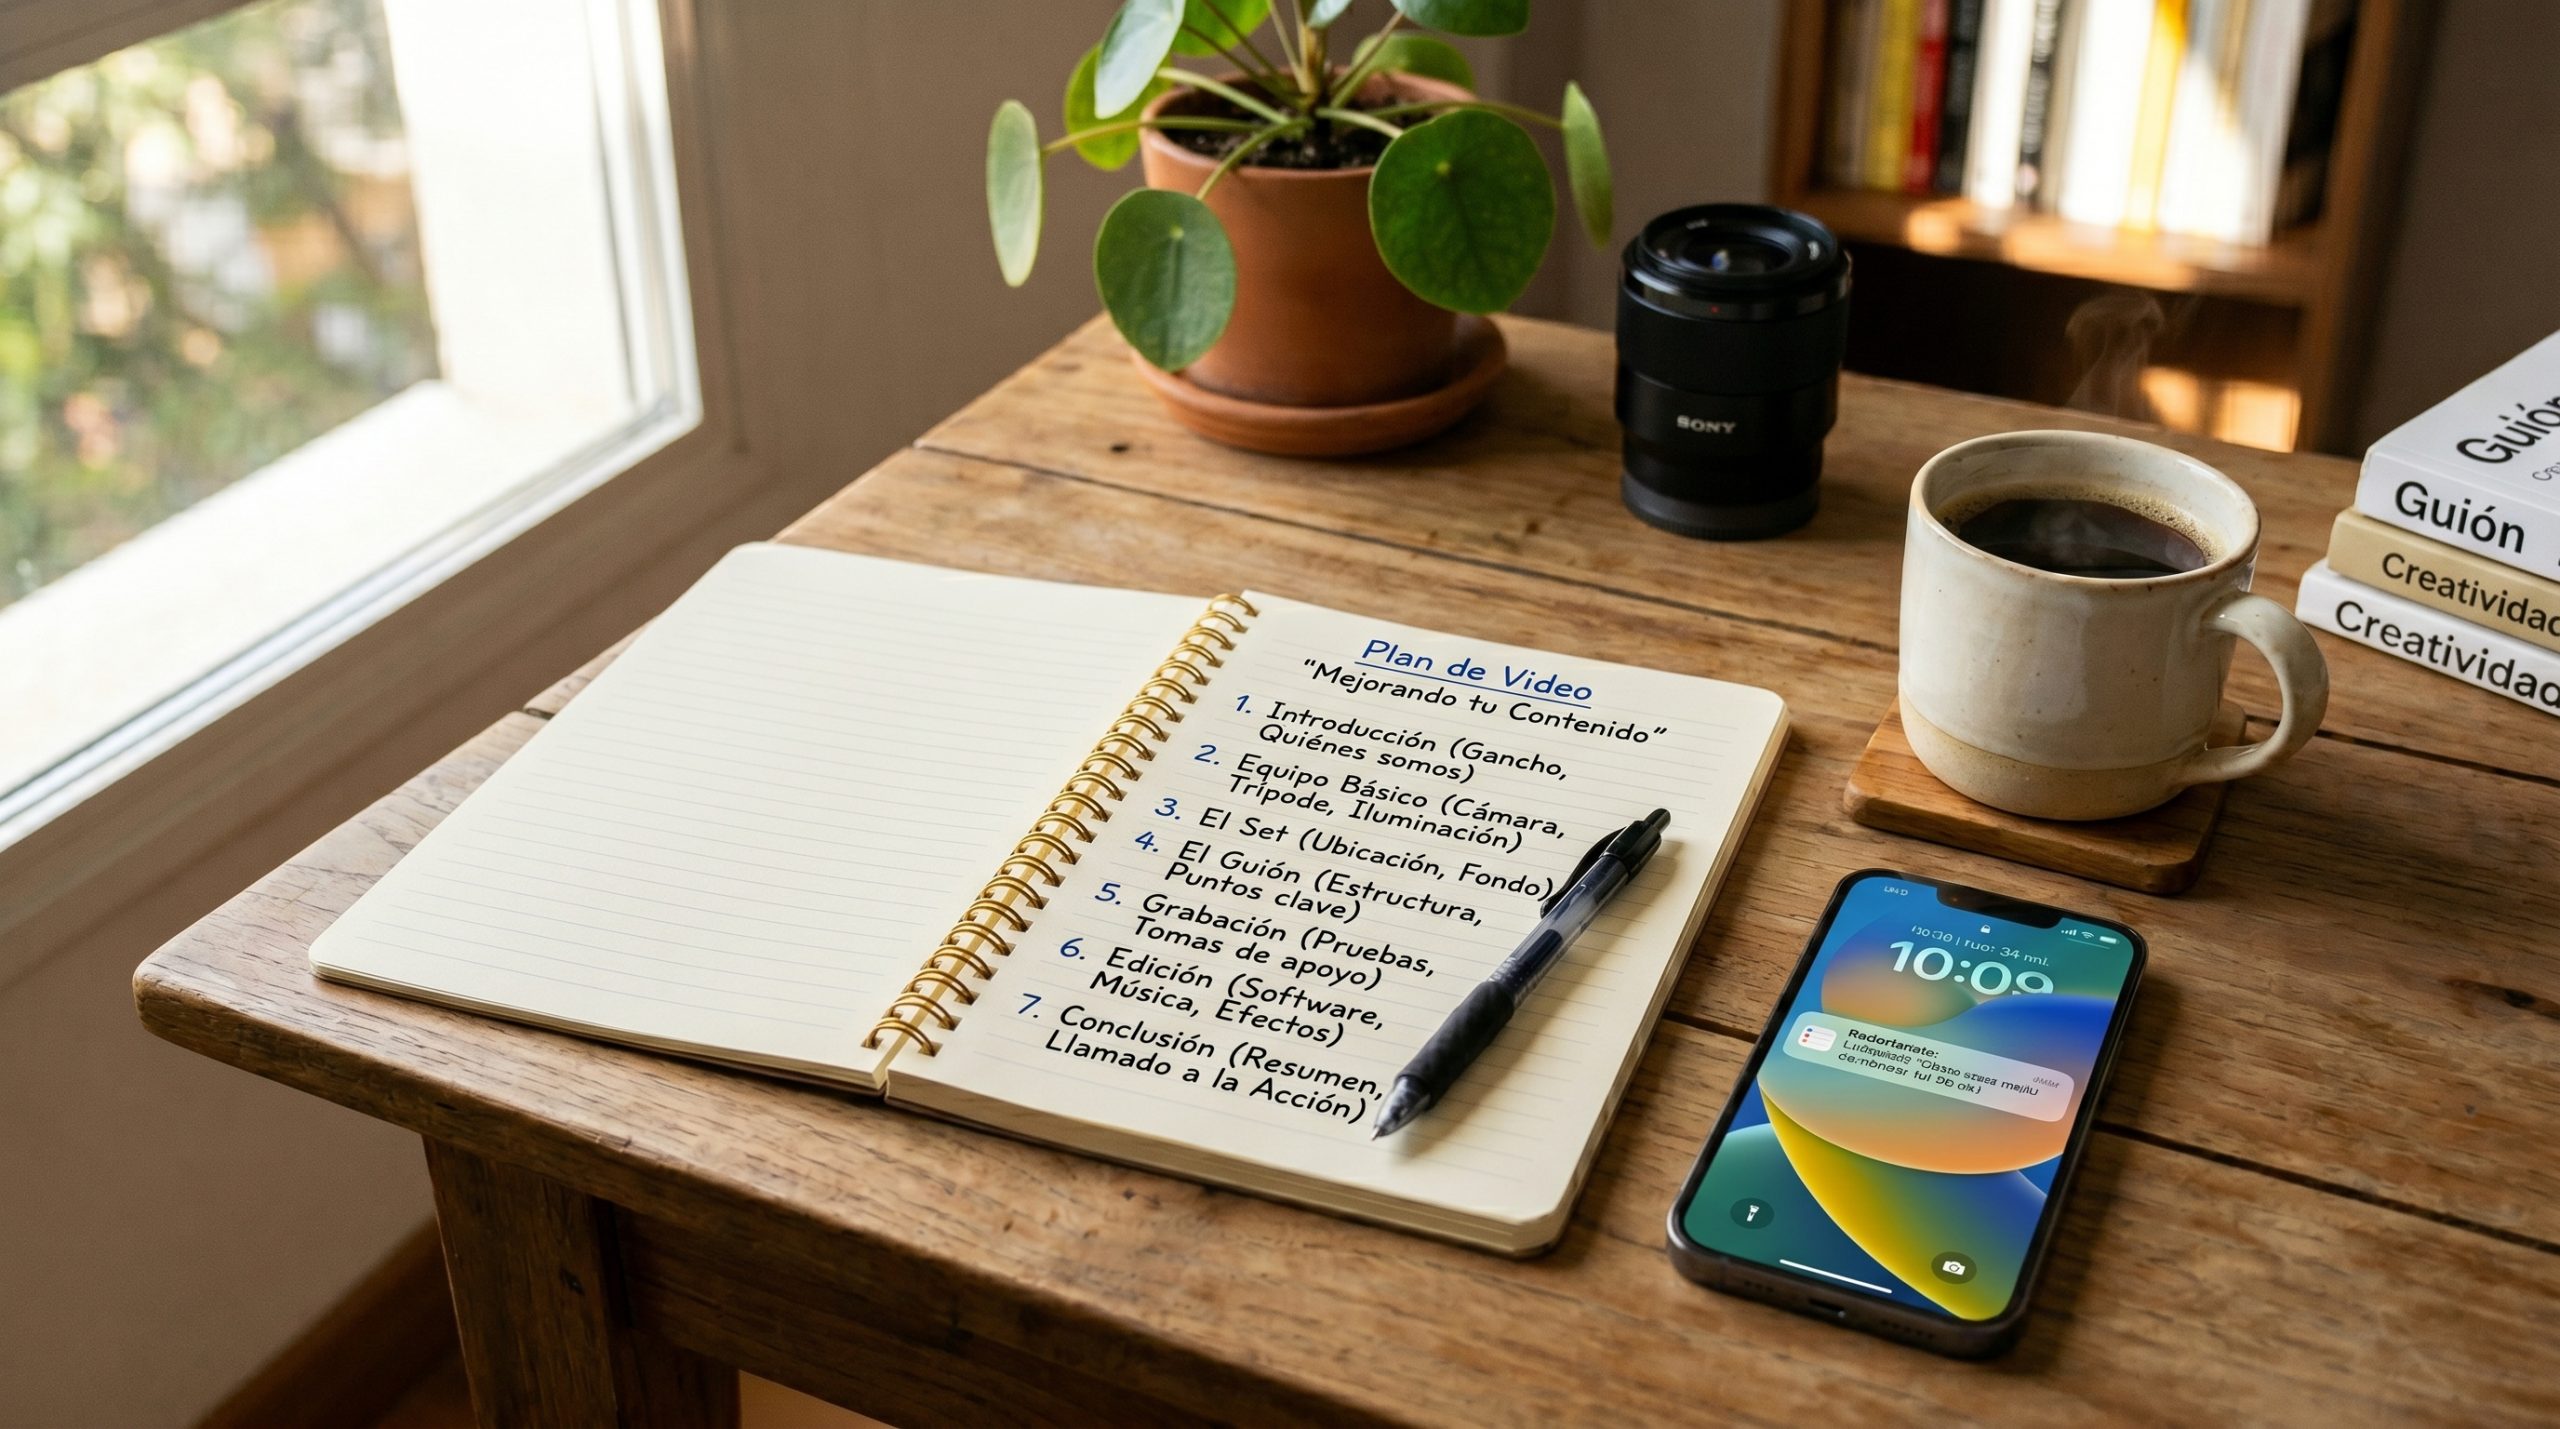 Plan de Video
"Mejorando tu Contenido"
1. Introducción (Gancho,
Quiénes somos)
2. Equipo Básico (Cámara,
Trípode, Iluminación)
3. El Set (Ubicación, Fondo)
4. El Guión (Estructura,
Puntos clave)
5. Grabación (Pruebas,
Tomas de apoyo)
6. Edición (Software,
Música, Efectos)
7. Conclusión (Resumen,
Llamado a la Acción)
SONY
Guión
Guión
Creatividad
Creatividad
10:09